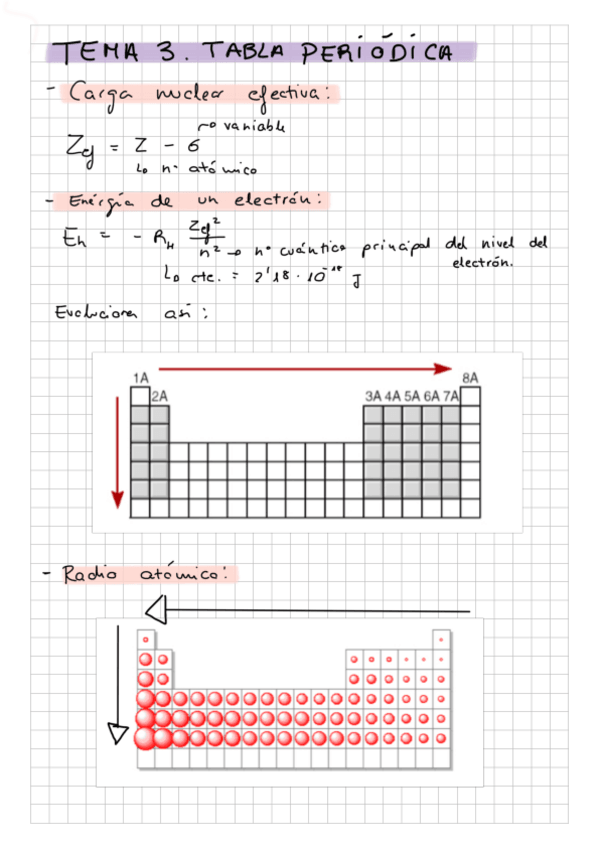 TEMA 3. TABLA PERIÓDICA
- Carga nuclear efectiva:
→ variable
Zef = Z - σ
↳ nº atómico
- Energía de un electrón:
En = - RH Zef² / n² → nº cuántico principal del nivel del electrón.
↳ cte. = 2'18 · 10⁻¹⁸ J
Evoluciona así:
1A 8A
2A 3A 4A 5A 6A 7A
- Radio atómico: